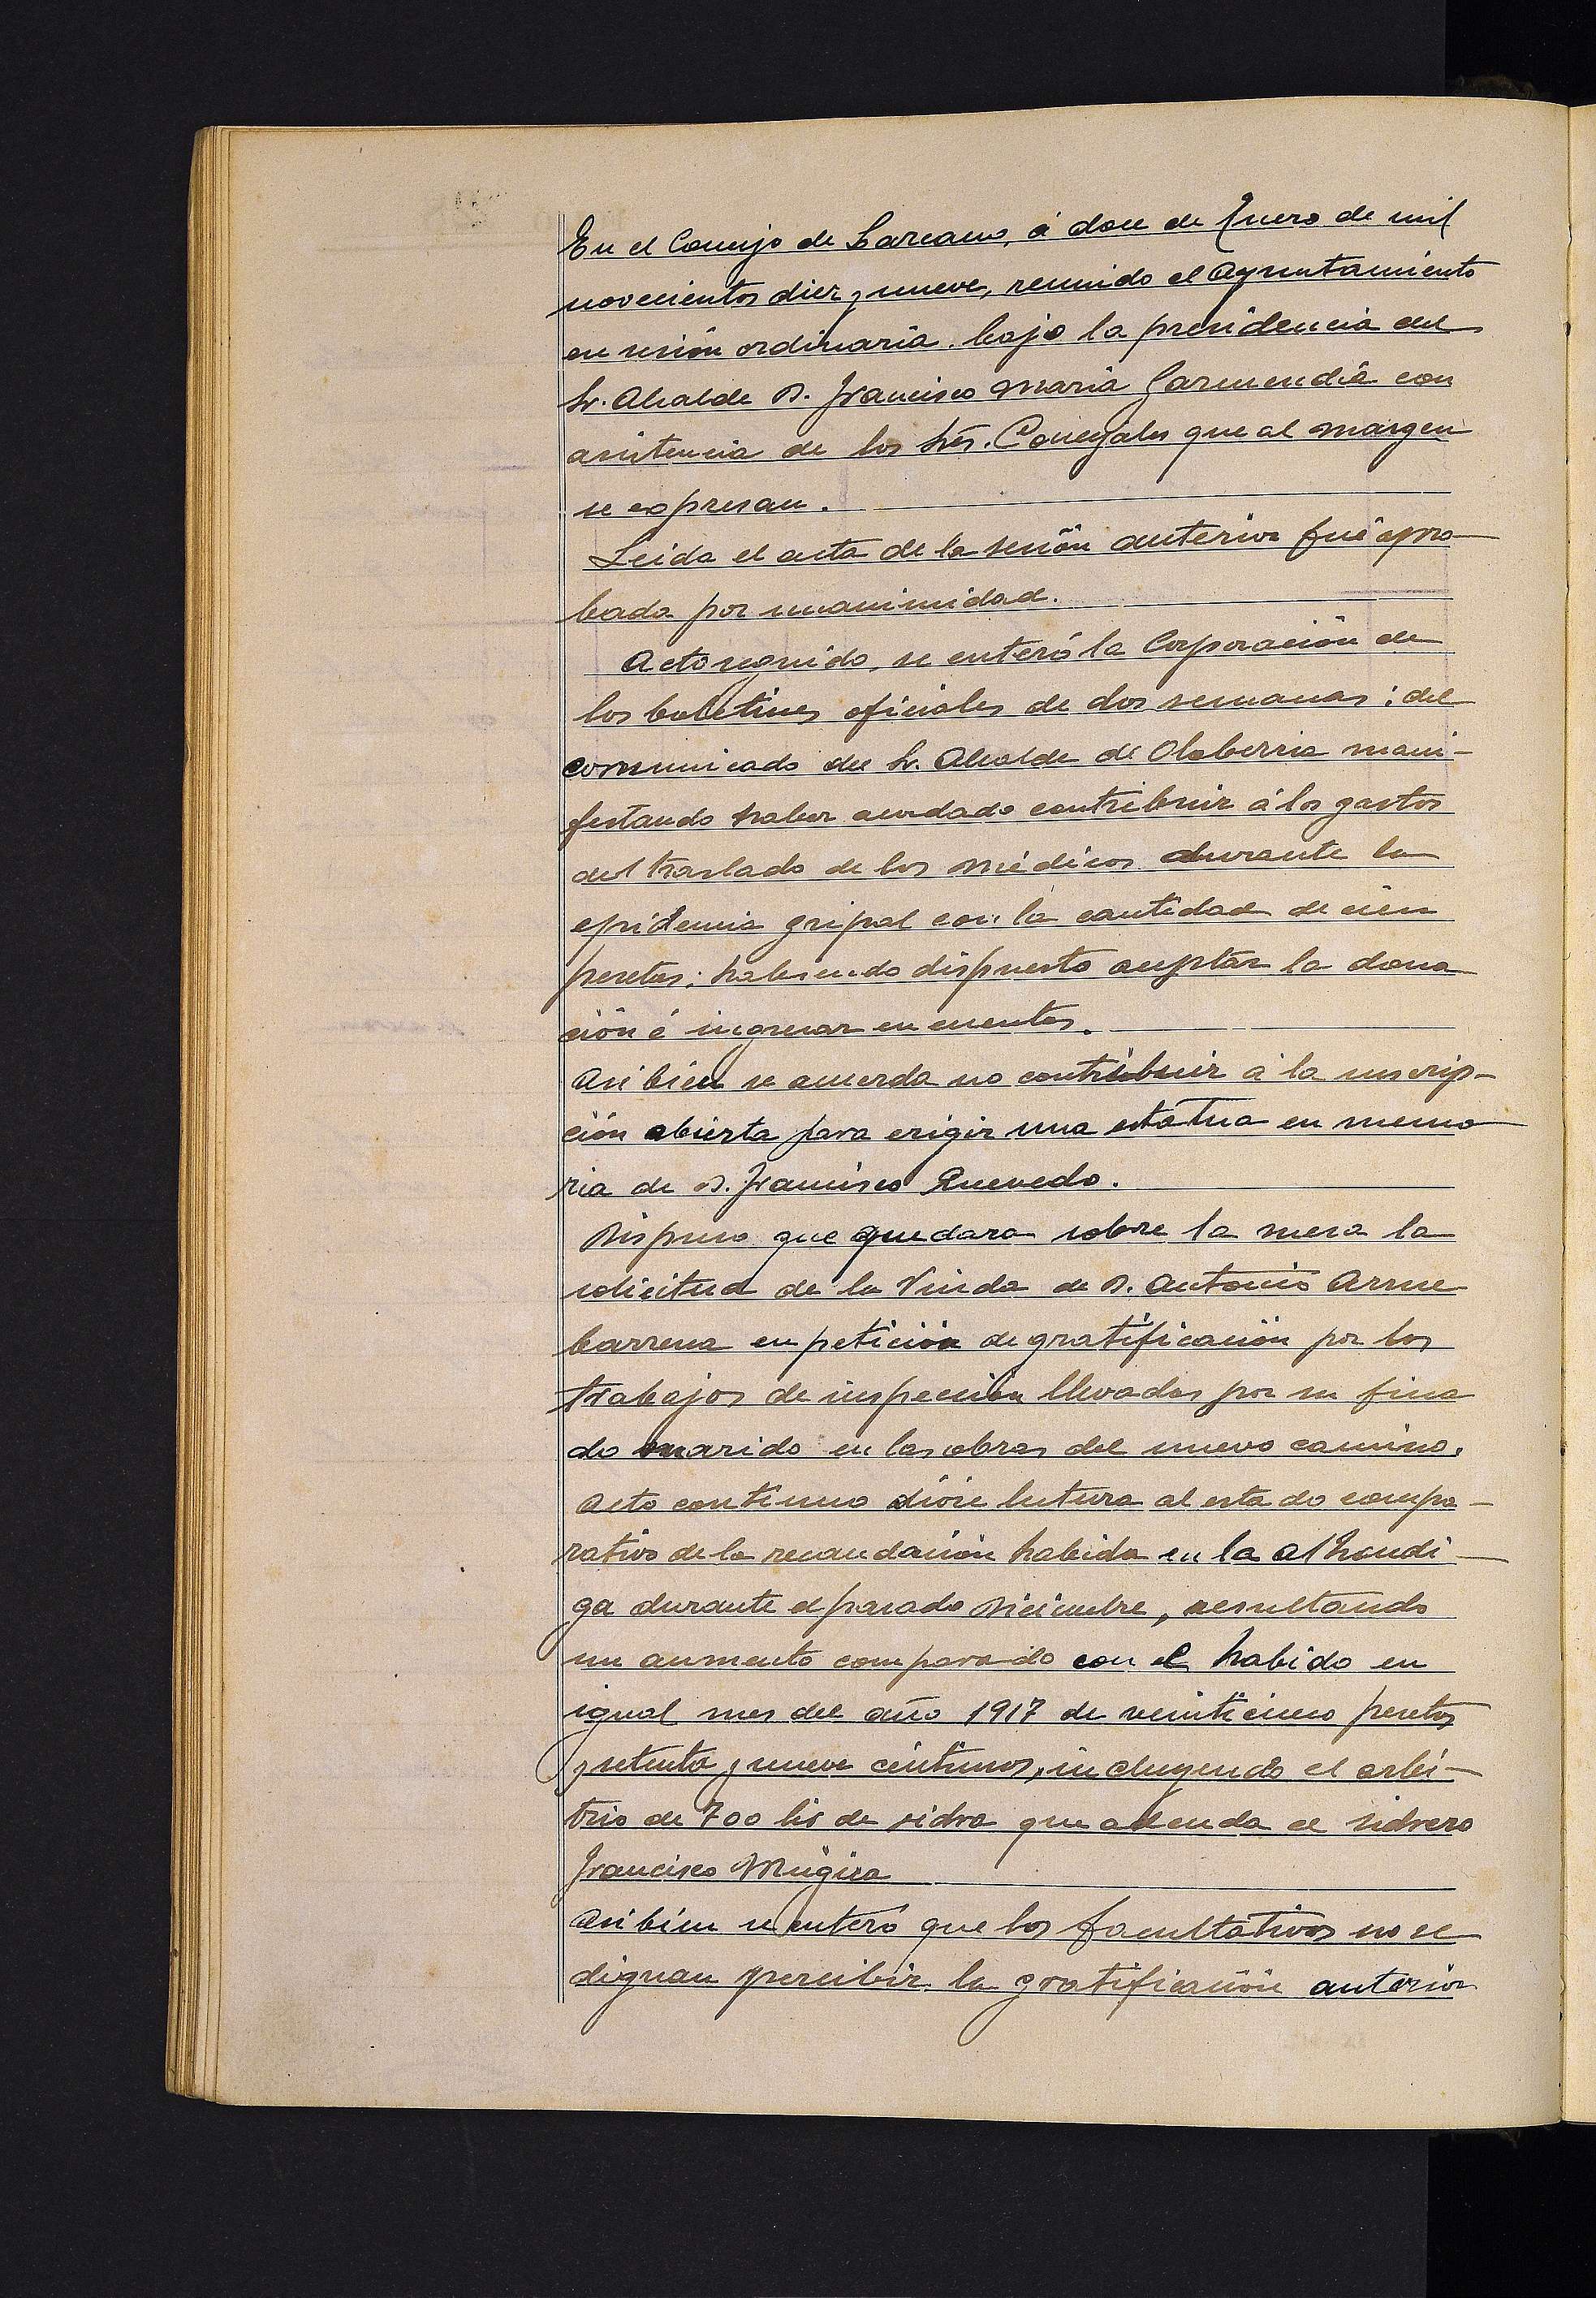 En el Concejo de Lazcano, á doce de Enero de mil
novecientos diez y nueve, reunido el Ayuntamiento
en sesión ordinaria bajo la presidencia del
Sr. Alcalde D. Francisco María Garmendia con
asistencia de los Sres. Concejales que al margen
se expresan.
Leida el acta de la sesión anterior fué apro
bada por unanimidad.
Acto seguido, se enteró la Corporación de
los boletines oficiales de dos semanas; del
comunicado del Sr. Alcalde de Olaberria mani-
festando haber acordado contribuir á los gastos
del traslado de los médicos durante la
epidemia gripal con la cantidad de cien
pesetas; habiendo dispuesto aceptar la dona
ción é ingresar en cuentas.
Asi bien se acuerda no contribuir á la suscrip-
ción abierta para erigir una estatua en memo
ria de D. Francisco Quevedo.
Dispuso que quedara sobre la mesa la
solicitud de la Viuda de D. Antonio Arrue
barrena en petición de gratificación por los
trabajos de inspección llevados por su fina
do marido en las obras del nuevo camino.
Acto continuo dióse lectura al estado compa-
rativo de la recaudación habida en la alhondi-
ga durante el pasado Diciembre, resultando
un aumento comparado con el habido en
igual mes del año 1917 de veinticinco pesetas
y setenta y nueve céntimos, incluyendo el arbi-
trio de 700 lis de sidra que adeuda el sidrero
Francisco Mugica
Asi bien se enteró que los facultativos no se
dignan percibir la gratificación anterior